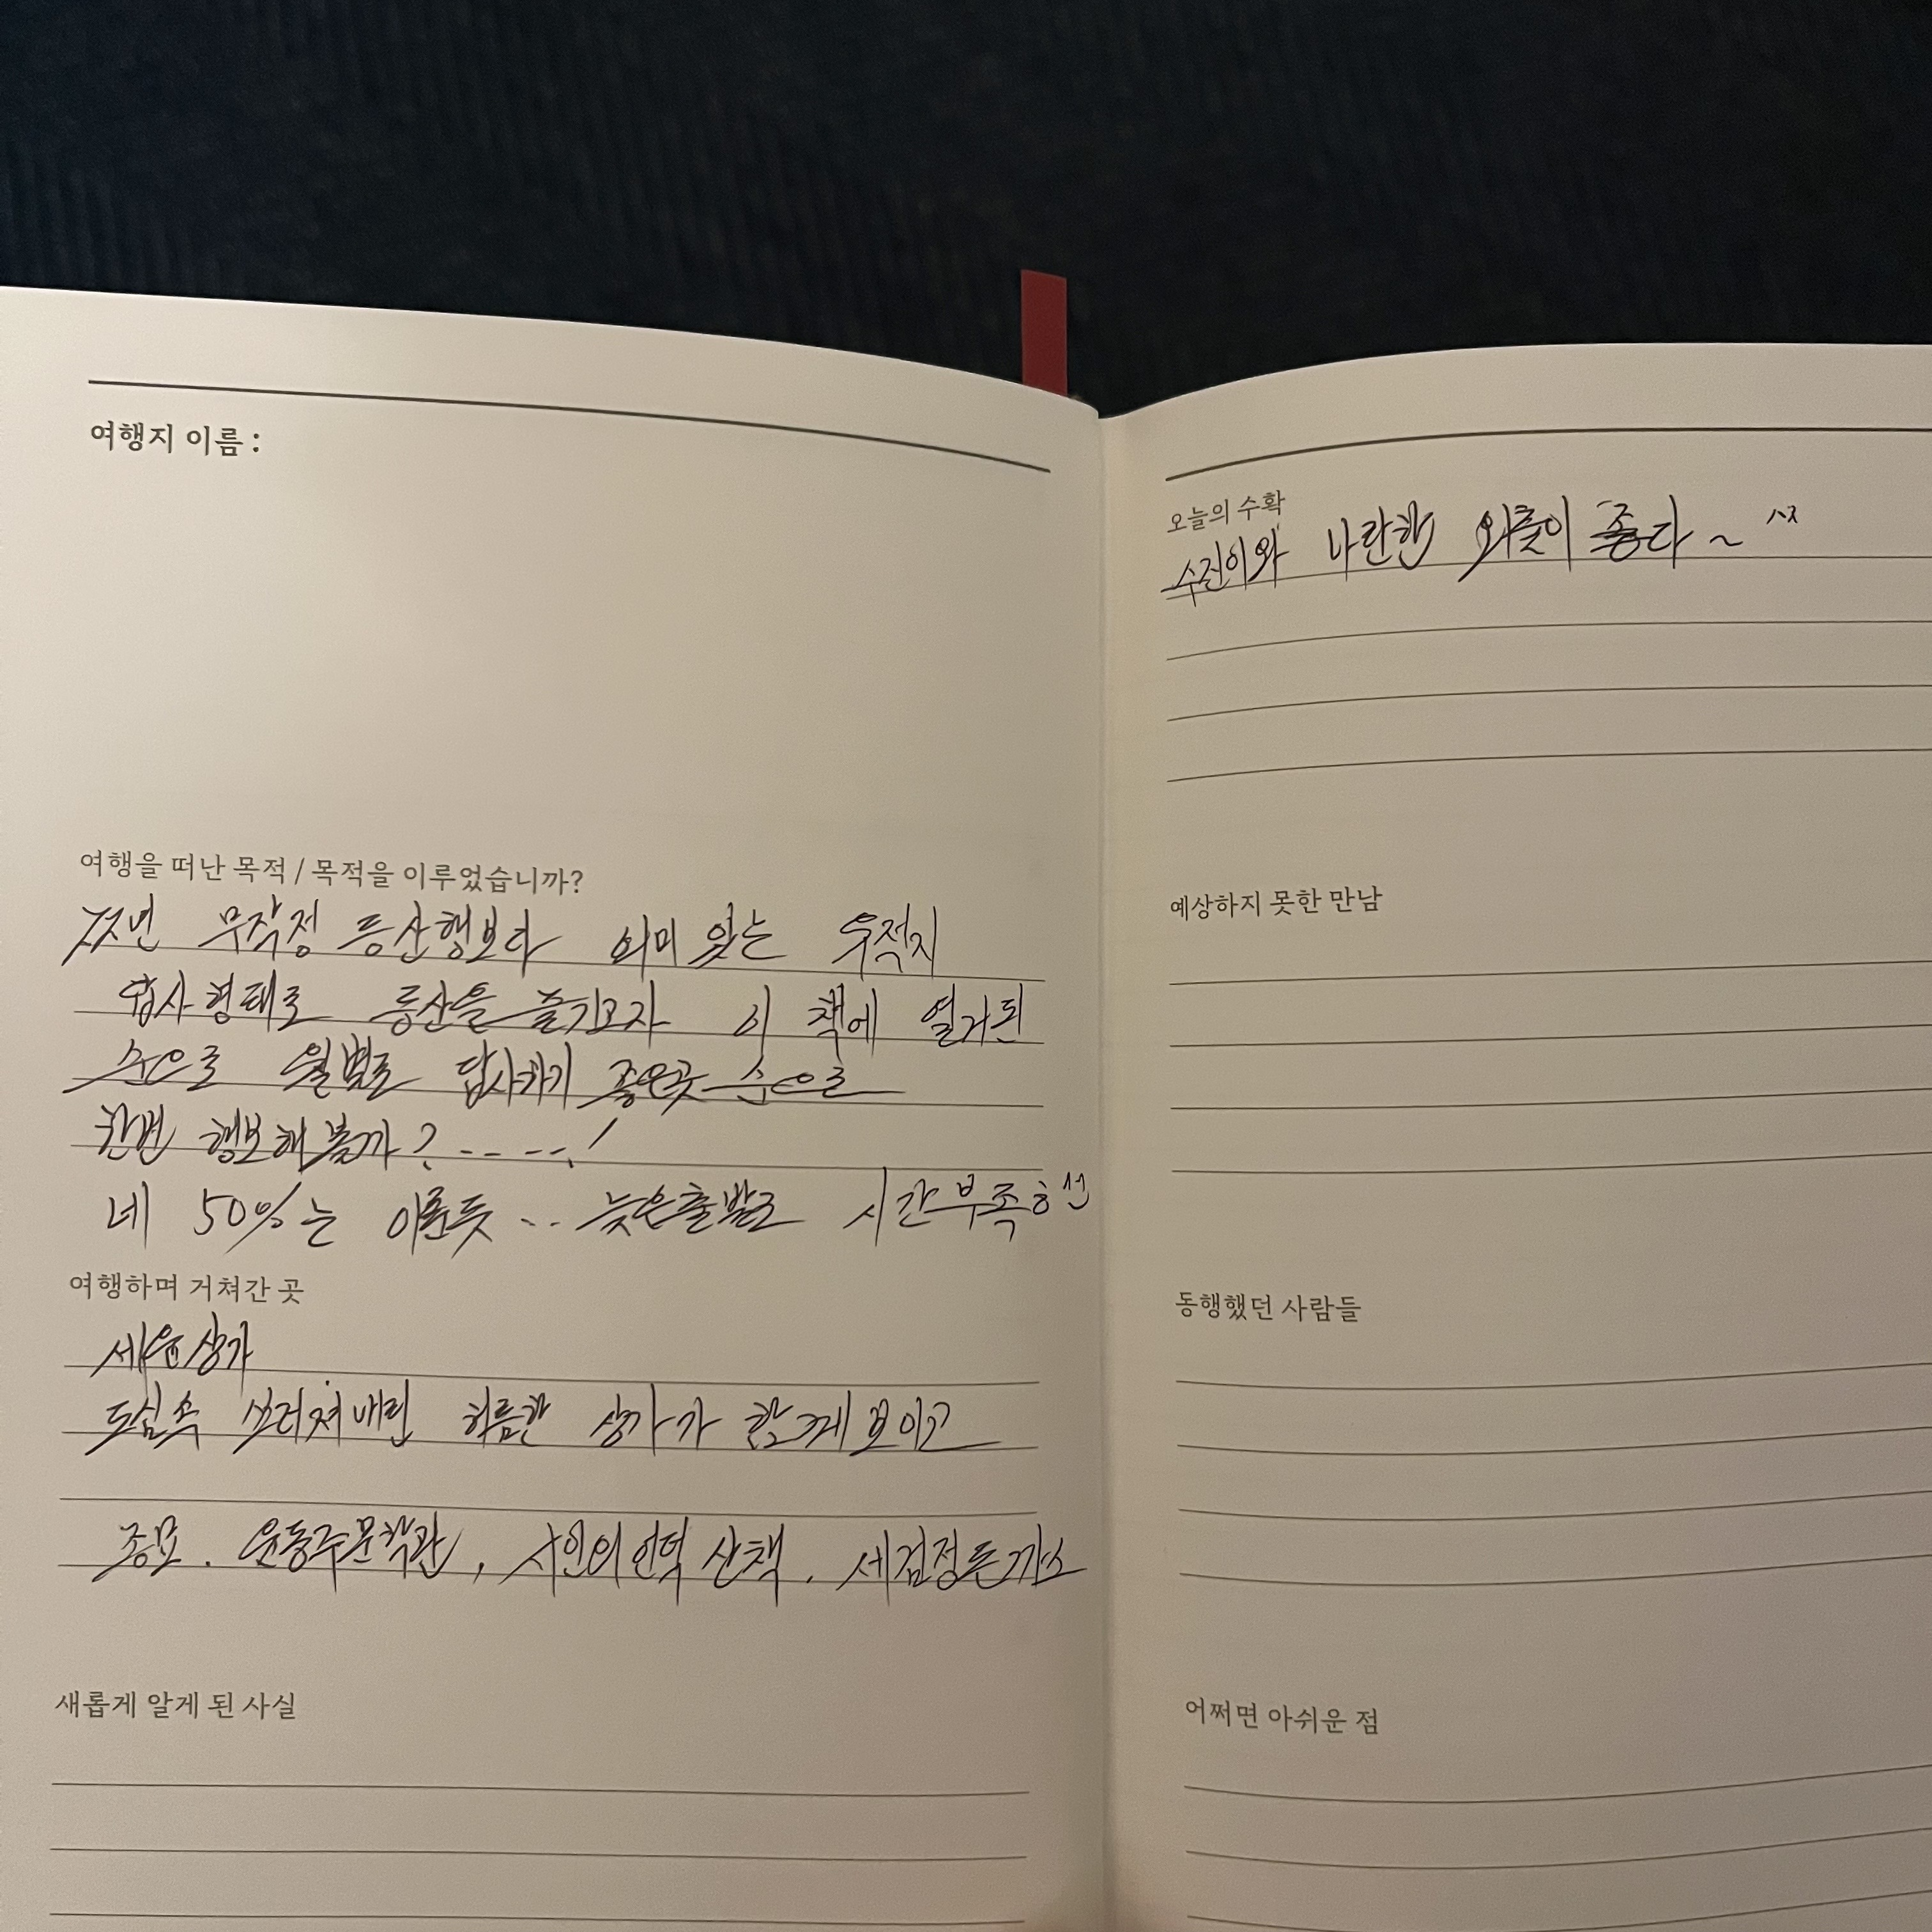 여행지 이름 :
여행을 떠난 목적 / 목적을 이루었습니까?
무작정 등산행보다 의미 있는 유적지
답사형태로 등산을 즐기고자 이 책에 열거된
순으로 월별로 답사하기 좋은곳 순으로
한번 행보해 볼까? -- --. !
네 50%는 이룬듯 -.. 늦은출발로 시간부족
여행하며 거쳐간 곳
세운상가
도심속 쓰러져내린 허름한 상가가 함께보이고
종묘. 윤동주문학관, 시인의언덕 산책. 세검정돈까스
새롭게 알게 된 사실
오늘의 수확
수진이와 나란한 외출이 좋다 ~
예상하지 못한 만남
동행했던 사람들
어쩌면 아쉬운 점